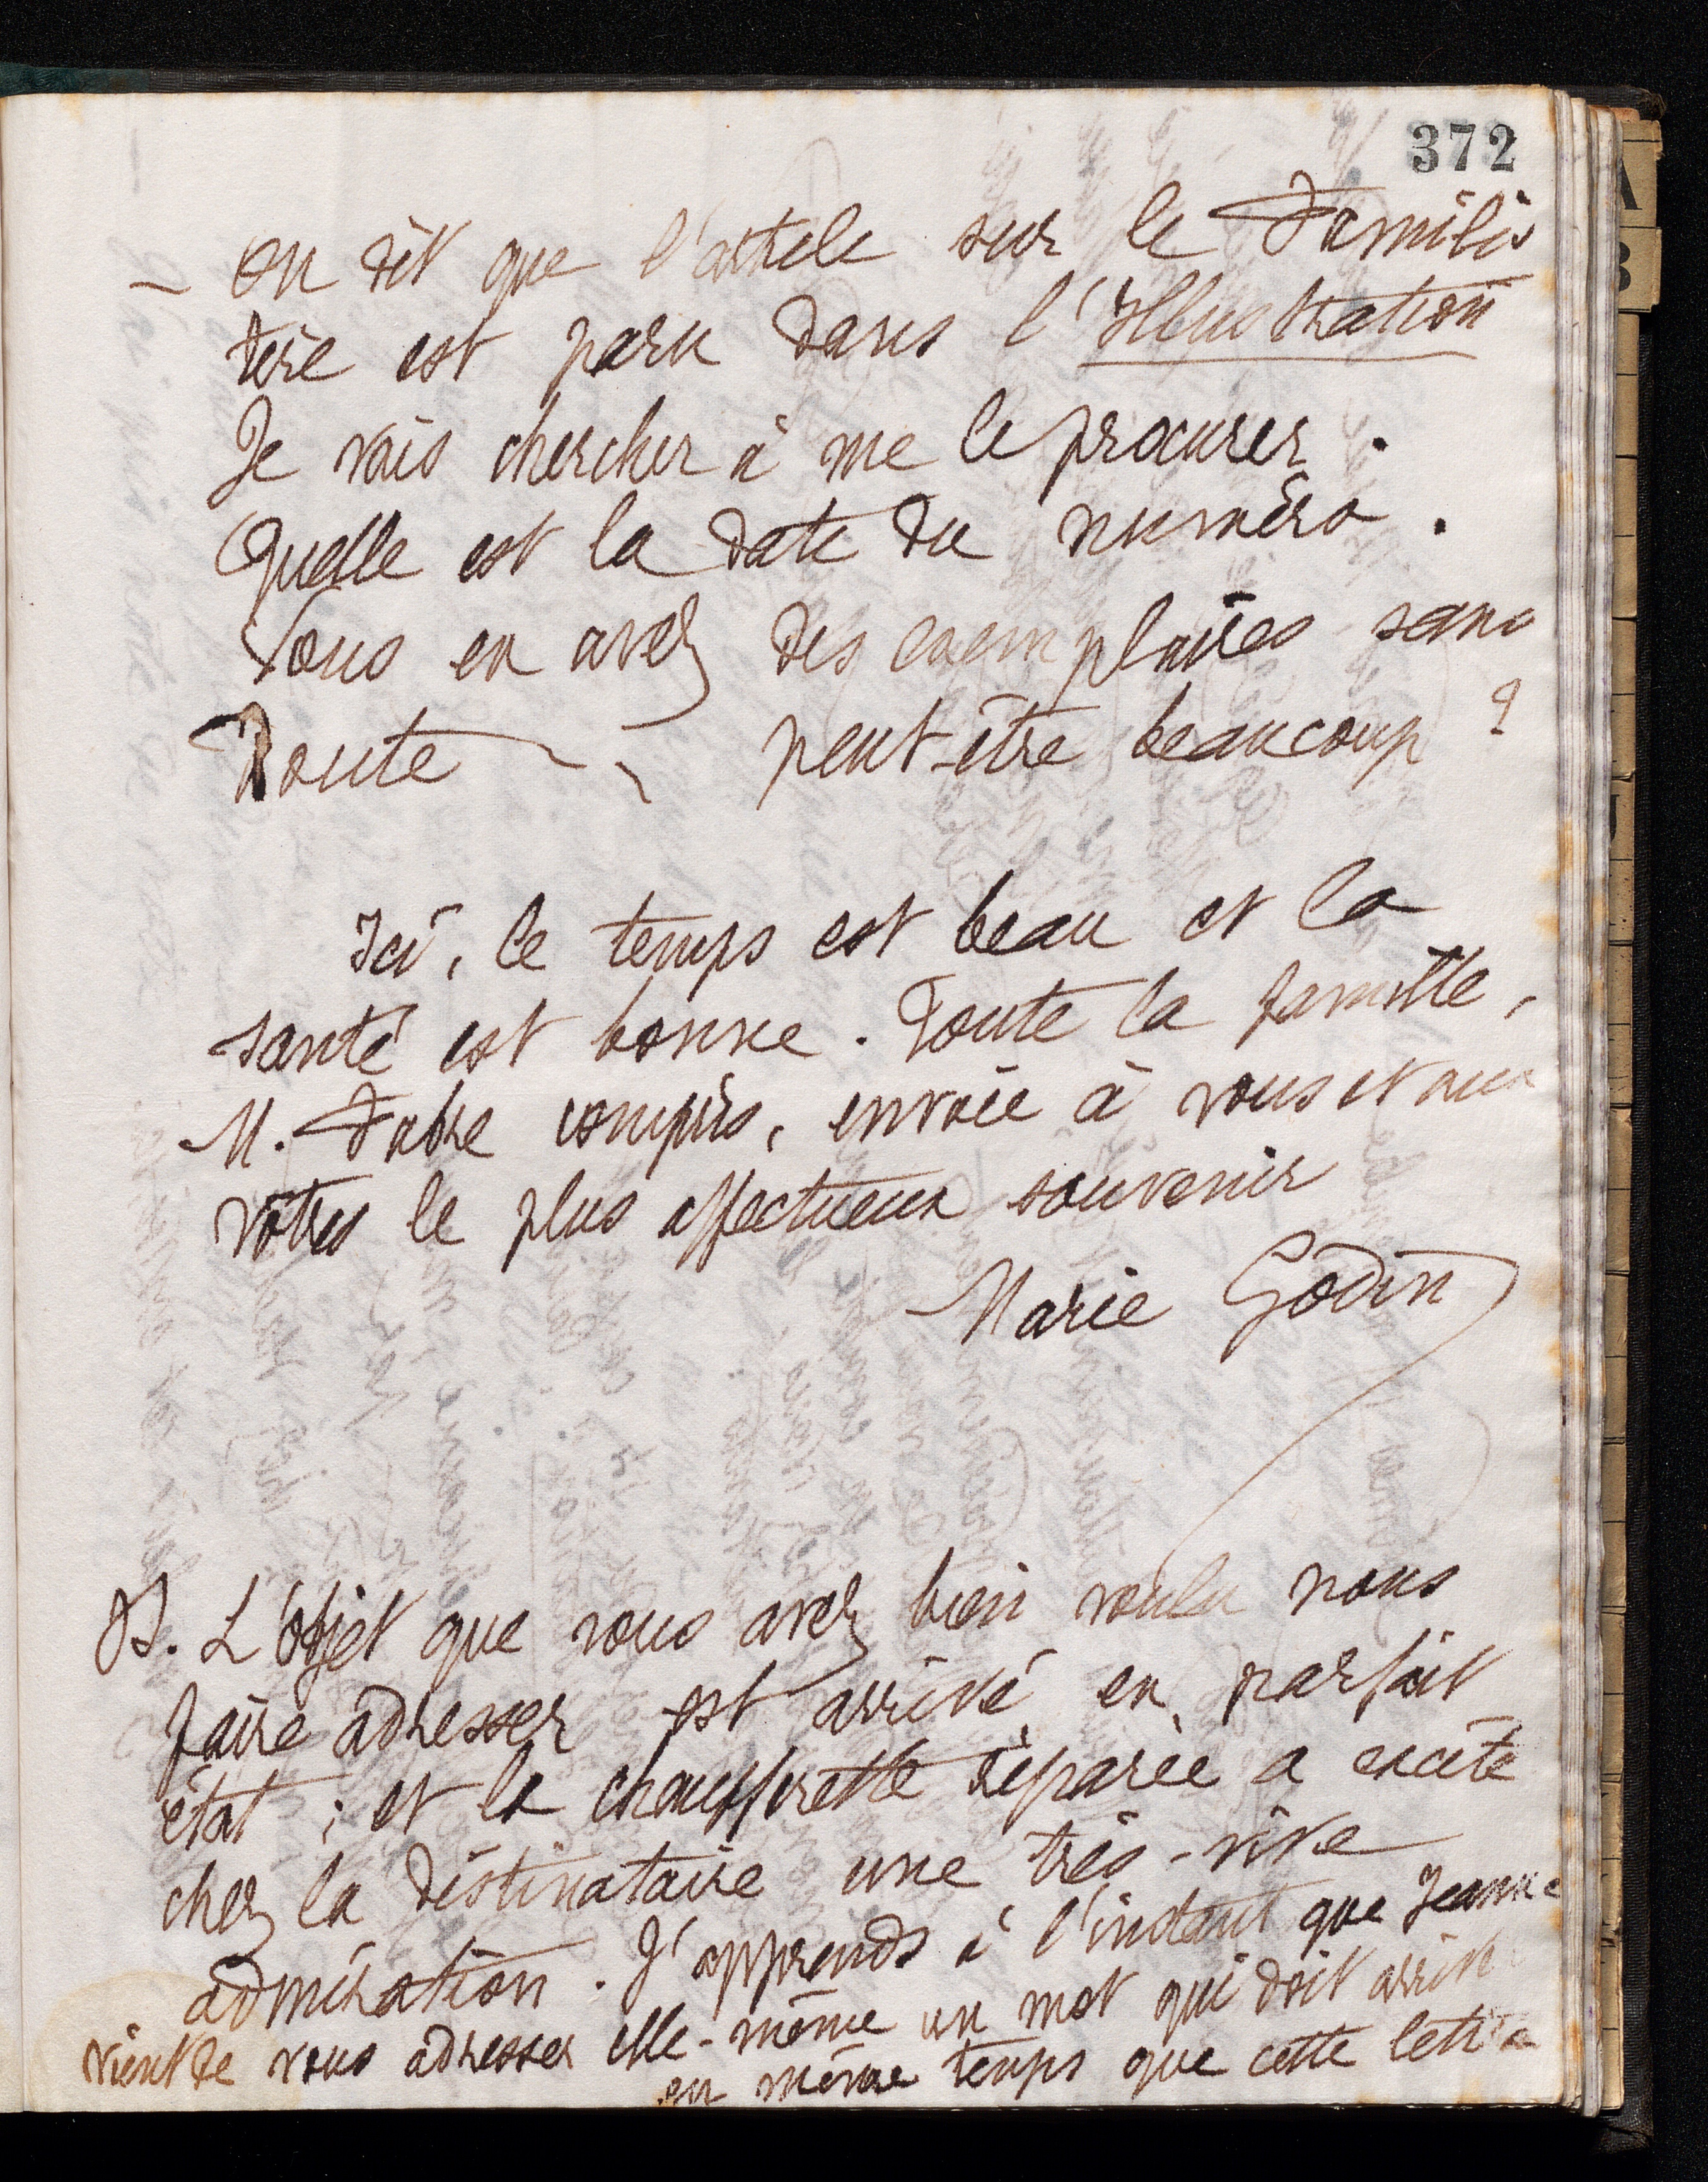 372
— On dit que l'article sur le Familis
tère est paru dans l'Illustration
Je vais chercher à me le procurer.
Quelle est la date du numéro.
Vous en avez des exemplaires sans
doute — peut-être beaucoup ?
Ici, le temps est beau et la
santé est bonne. Toute la famille,
M. Fabre compris, envoie à vous et aux
vôtres le plus affectueux souvenir
Marie Godin
PS. L'objet que vous avez bien voulu nous
faire adresser est arrivé en parfait
état ; et la chaufferette réparée a excité
chez la destinataire une très-vive
admiration. J'apprends à l'instant que Jeanne
vient de vous adresser elle-même un mot qui doit arriv
en même temps que cette lettre